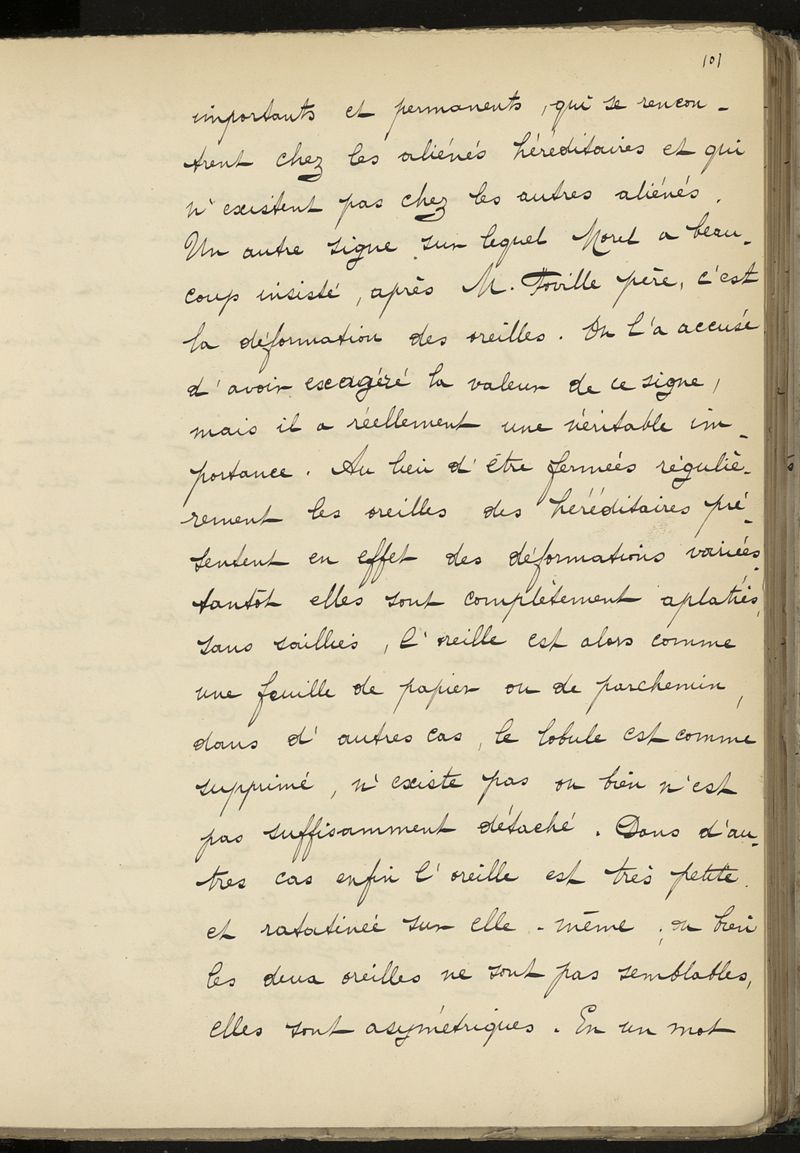 101
importants et permanents, qui se rencon-
trent chez les aliénés héréditaires et qui
n'existent pas chez les autres aliénés.
Un autre signe sur lequel Morel a beau-
coup insisté, après M. Foville père, c'est
la déformation des oreilles. On l'a accusé
d'avoir exagéré la valeur de ce signe,
mais il a réellement une véritable im-
portance. Au lieu d'être fermées réguliè-
rement les oreilles des héréditaires pré-
sentent en effet des déformations variées.
tantôt elles sont complètement aplaties,
sans saillies, l'oreille est alors comme
une feuille de papier ou de parchemin,
dans d'autres cas, le lobule est comme
supprimé, n'existe pas ou bien n'est
pas suffisamment détaché. Dans d'au-
tres cas enfin l'oreille est très petite
et ratatinée sur elle-même; ou bien
les deux oreilles ne sont pas semblables,
elles sont asymétriques. En un mot